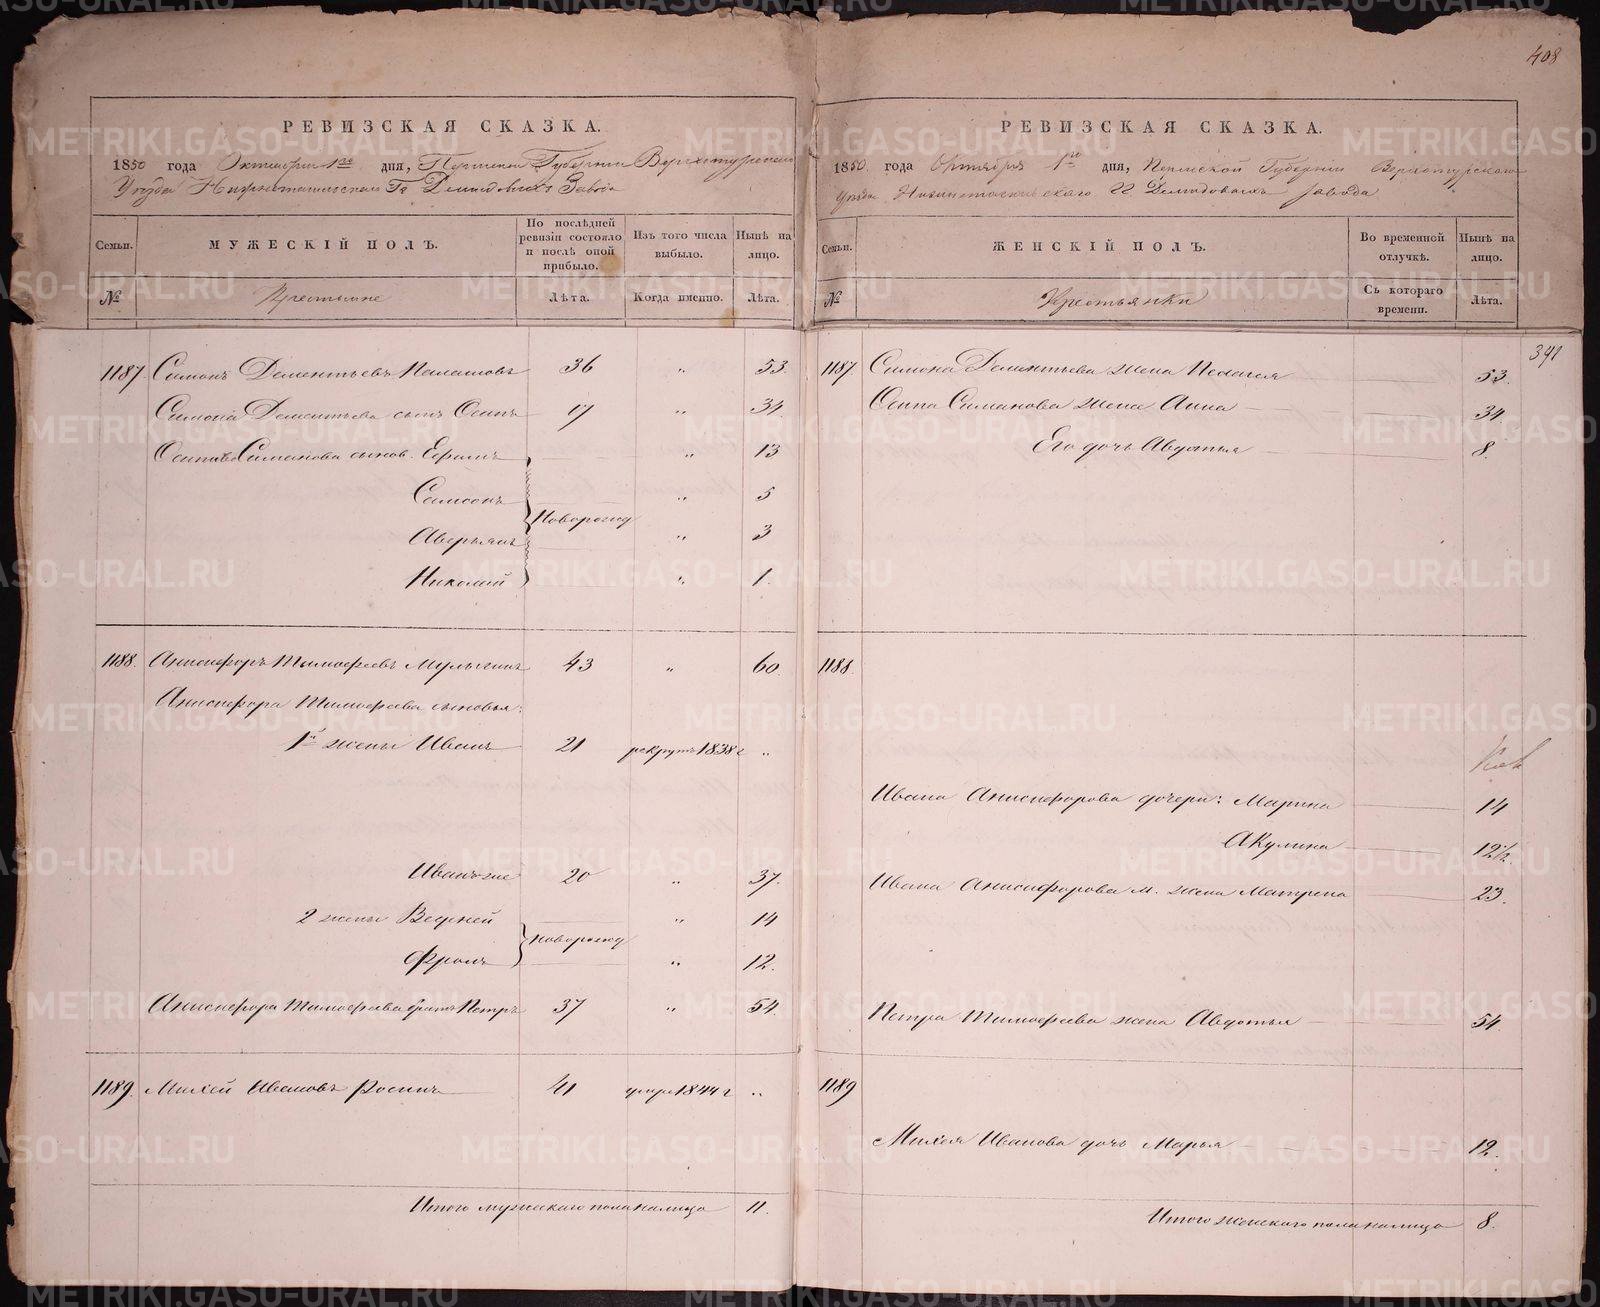 408
РЕВИЗСКАЯ СКАЗКА.
1850 года Октября 1го дня, Пермской Губернии Верхотурскаго
Уѣзда Нижнетагильскаго Гг Демидовыхъ Завода
Семьи.
МУЖЕСКІЙ ПОЛЪ.
По послѣдней ревизіи состояло и послѣ оной прибыло.
Изъ того числа выбыло.
Нынѣ на лицо.
№
Крестьяне
Лѣта.
Когда именно.
Лѣта.
1187. Симонъ Дементьевъ 36 " 53.
Симона Дементьева сынъ Осипъ 17 " 34
Осипа Симанова сынов. Ефимъ " 13
Самсонъ " 5
Новорожд
Аверьянъ " 3
Николай " 1.
1188. Анисифоръ Тимофеевъ Мулыгинъ 43 " 60.
Анисифора Тимофеева сыновья:
1й жены Иванъ 21 рекрутъ 1838 г "
Иванъ же 20 " 37.
2 жены Веденей " 14
новорожд
Фролъ " 12.
Анисифора Тимофеева братъ Петръ 37 " 54.
1189. Михей Ивановъ 41 умре 1844 г "
Итого мужескаго пола налицо 11.
РЕВИЗСКАЯ СКАЗКА.
1850 года Октября 1го дня, Пермской Губерніи Верхотурскаго
Уѣзда Нижнетагильскаго ГГ Демидовыхъ завода
Семьи.
ЖЕНСКІЙ ПОЛЪ.
Во временной отлучкѣ.
Нынѣ на лицо.
№
Крестьянки
Съ котораго времени.
Лѣта.
391
1187 Симона Дементьева жена Пелагея 53.
Осипа Симанова жена Анна 34.
Его дочь Авдотья 8.
1188
Ивана Анисифорова дочери: Марина 14
Акулина 12½.
Ивана Анисифорова м. жена Матрена 23.
Петра Тимофеева жена Авдотья 54.
1189
Михея Иванова дочь Марья 12.
Итого женскаго пола налицо 8.
METRIKI.GASO-URAL.RU